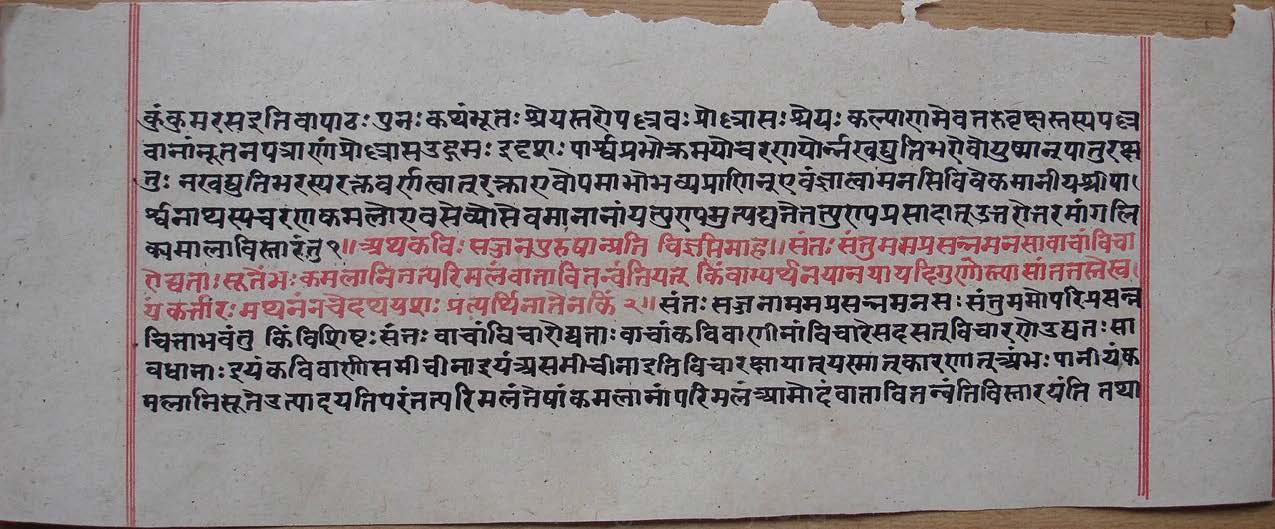 क्रुंक्रमरसइतिवापाठः पुनः कथंभूतः श्रेयस्तरोपल्लवः प्रोल्लासः श्रेयः कल्याणमेवतरुवृक्षस्तस्यपल्ल
वानांनूतनपत्राणांप्रोल्लासउद्गमः इदृशः पार्श्वप्रभोक्रमयोचरणयोर्न्नखद्युतिभरोवोयुष्मान्पातुरक्ष
तुः नखद्युतिभरस्यरक्तवर्णत्वात्रक्तारावोपमाभोभव्यप्राणिन्एवंज्ञात्वामनसिविवेकमानीयश्रीपा
र्श्वनाथस्यचरणकमलौएवसेव्यौसेवमानानांयत्पुण्यमुत्पद्यतेतत्पुण्यप्रसादात्उत्तरोत्तरमांगलि
क्यमालाविस्तारंतु १॥ अथकविः सज्जनपुरुषान्प्रति विज्ञप्तिमाह॥ संतः संतुममप्रसन्नमनसोवाचांविचा
रोद्यताः सूतेंभः कमलानितत्परिमलंवातावितन्वंतियत् किंवाभ्यर्थनयानयायदिगुणोस्त्यासांततस्तेस्व
यं कर्त्तारः प्रथनंनचेदथयशः प्रत्यर्थिनातेनकिं २॥ संतः सज्जनाममप्रसन्नमनसः संतुममोपरिप्रसन्न
चित्ताभवंतु किंविशिष्टः संतः वाचांविचारोद्यताः वाचांकविवाणीनांविचारेसदसत्विचारणेउद्यतः सा
वधानाः इयंकविवाणीसमीचीनाइयंअसमीचीनाइतिविचारक्षायात्यस्मात्कारणात्अंभः पानीयंक
मलानिसूतेउत्पादयतिपरंतत्परिमलंतेषांकमलानांपरिमलंआमोदंवातावितन्वंतिविस्तारयंति तथा